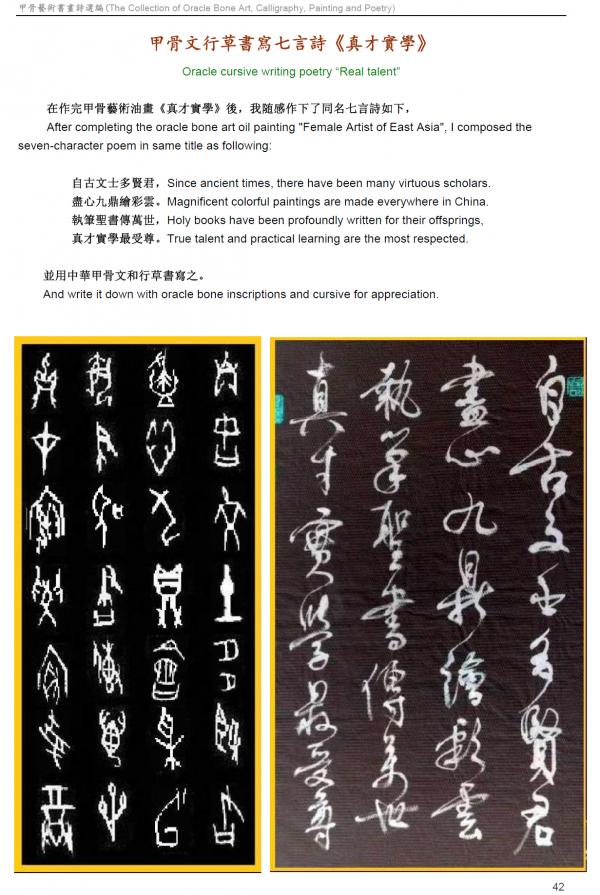 甲骨藝術書畫詩選編(The Collection of Oracle Bone Art, Calligraphy, Painting and Poetry)
甲骨文行草書寫七言詩《真才實學》
Oracle cursive writing poetry “Real talent”
在作完甲骨藝術油畫《真才實學》後，我随感作下了同名七言詩如下，
After completing the oracle bone art oil painting "Female Artist of East Asia", I composed the
seven-character poem in same title as following:
自古文士多賢君，Since ancient times, there have been many virtuous scholars.
盡心九鼎繪彩雲。Magnificent colorful paintings are made everywhere in China.
執筆聖書傳萬世，Holy books have been profoundly written for their offsprings,
真才實學最受尊。True talent and practical learning are the most respected.
並用中華甲骨文和行草書寫之。
And write it down with oracle bone inscriptions and cursive for appreciation.
自古文士多賢君
盡心九鼎繪彩雲
執筆聖書傳萬世
真才實學最受尊
42